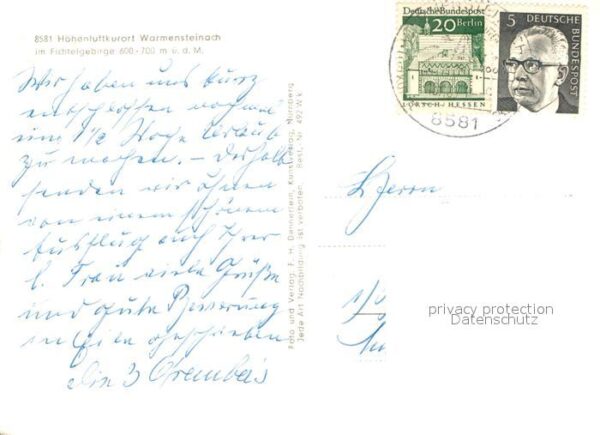 8581 Höhenluftkurort Warmensteinach
im Fichtelgebirge 600-700 m ü. d. M.
Wir haben uns kurz
entschlossen nochmal
um 1/2 Woche Urlaub
zu machen. – Deshalb
senden wir Ihnen
von einem schönen
Ausflug auch Ihrer
l. Frau viele Grüße
und gute Besserung
in Eile geschrieben
Die 3
Foto und Verlag: F. H. Dannerlein, Kunstverlag, Nürnberg
Jede Art Nachbildung ist verboten. Best. Nr. 492 W k
Deutsche Bundespost
20 Berlin
LORSCH/HESSEN
5 DEUTSCHE
BUNDESPOST
8581
Herrn
privacy protection
Datenschutz